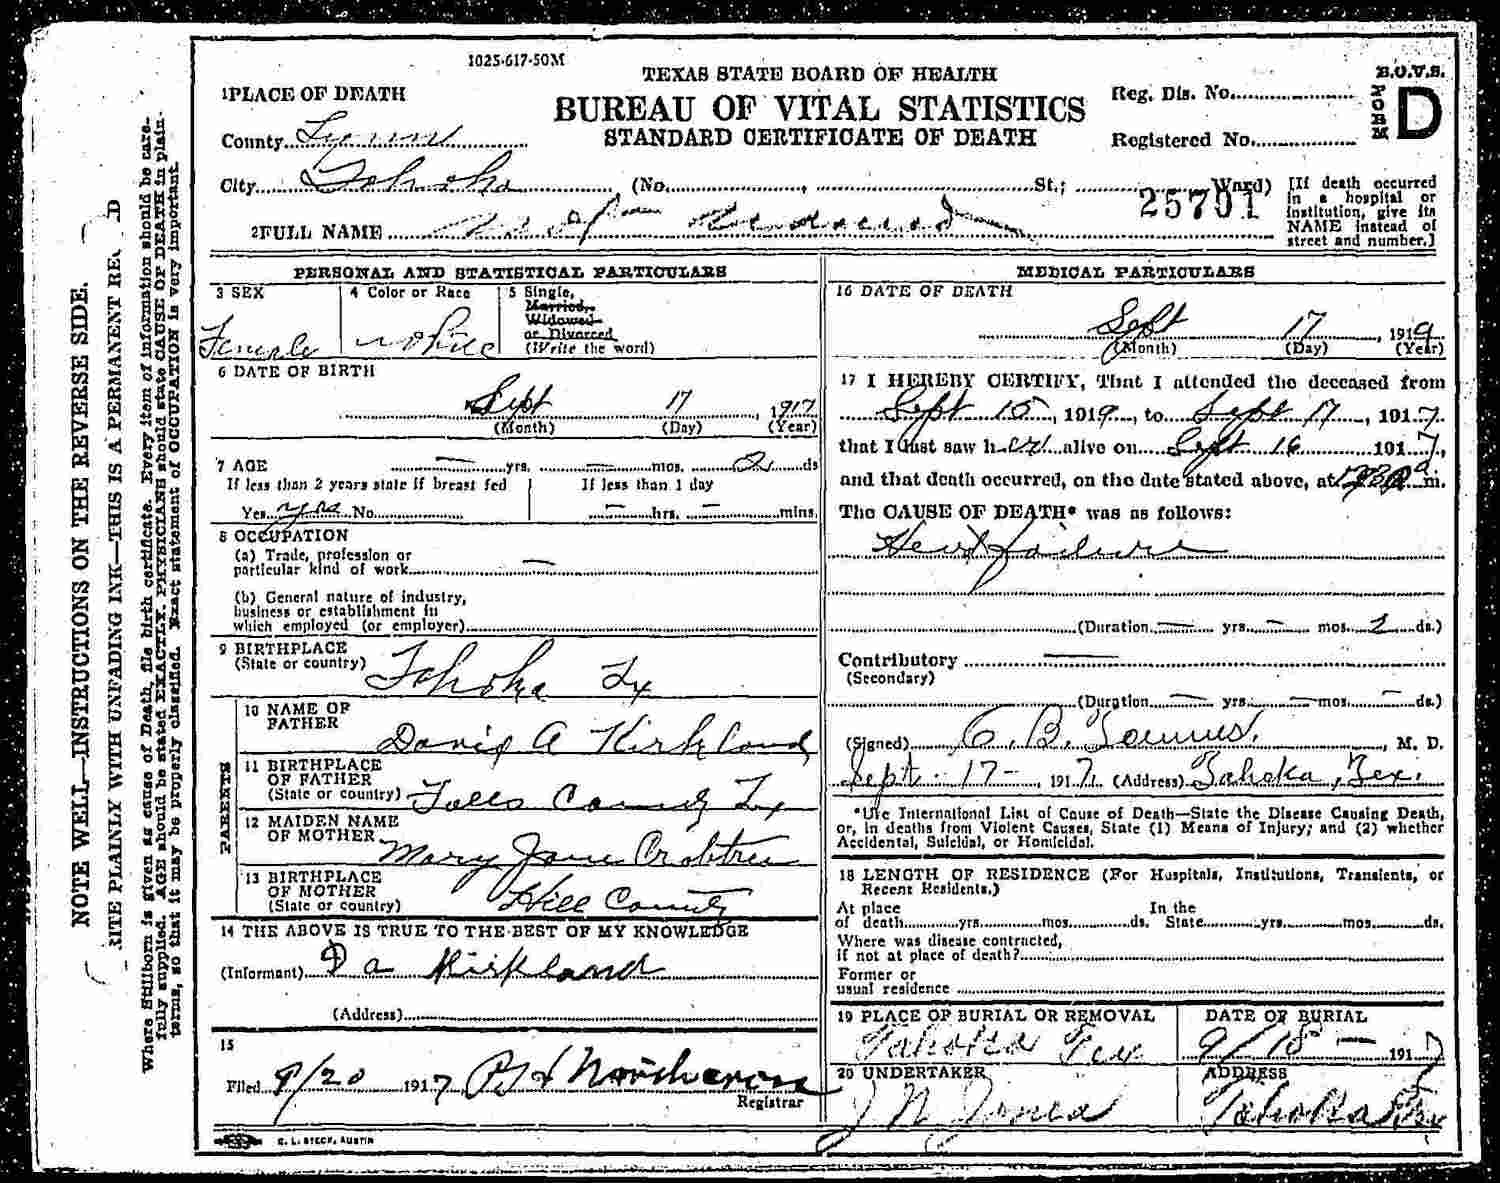 1025-617-50M
TEXAS STATE BOARD OF HEALTH
BUREAU OF VITAL STATISTICS
STANDARD CERTIFICATE OF DEATH
B.O.V.S.
FORM D
Reg. Dis. No.
Registered No.
1 PLACE OF DEATH
County Lynn
City Tahoka (No. , St.; Ward)
25701
[If death occurred
in a hospital or
institution, give its
NAME instead of
street and number.]
2 FULL NAME
PERSONAL AND STATISTICAL PARTICULARS
3 SEX
Female
4 Color or Race
White
5 Single,
Married,
Widowed
or Divorced
(Write the word)
6 DATE OF BIRTH
Sept 17, 1917
(Month) (Day) (Year)
7 AGE yrs. mos. 2 ds
If less than 2 years state if breast fed
Yes yes No
If less than 1 day
hrs. mins.
8 OCCUPATION
(a) Trade, profession or
particular kind of work
(b) General nature of industry,
business or establishment in
which employed (or employer)
9 BIRTHPLACE
(State or country) Tahoka Tx
PARENTS
10 NAME OF
FATHER
David A Kirkland
11 BIRTHPLACE
OF FATHER
(State or country) Falls County Tx
12 MAIDEN NAME
OF MOTHER
Mary Jane Crabtree
13 BIRTHPLACE
OF MOTHER
(State or country) Hill County
14 THE ABOVE IS TRUE TO THE BEST OF MY KNOWLEDGE
(Informant) D a Kirkland
(Address)
15
Filed 9/20 1917 Northcross
Registrar
MEDICAL PARTICULARS
16 DATE OF DEATH
Sept 17, 1919
(Month) (Day) (Year)
17 I HEREBY CERTIFY, That I attended the deceased from
Sept 15, 1919, to Sept 17, 1917,
that I last saw her alive on Sept 16 1917,
and that death occurred, on the date stated above, at m.
The CAUSE OF DEATH* was as follows:
Heart failure
(Duration yrs. mos. 2 ds.)
Contributory
(Secondary)
(Duration yrs. mos. ds.)
(Signed) C. B. M. D.
Sept. 17- 1917. (Address) Tahoka, Tex.
*Use International List of Cause of Death—State the Disease Causing Death,
or, in deaths from Violent Causes, State (1) Means of Injury; and (2) whether
Accidental, Suicidal, or Homicidal.
18 LENGTH OF RESIDENCE (For Hospitals, Institutions, Transients, or
Recent Residents.)
At place In the
of death yrs. mos. ds. State yrs. mos. ds.
Where was disease contracted,
if not at place of death?
Former or
usual residence
19 PLACE OF BURIAL OR REMOVAL
Tahoka Tex
DATE OF BURIAL
9/18 - 1917
20 UNDERTAKER
J N Jones
ADDRESS
Tahoka Tex
E. L. STECK, AUSTIN
NOTE WELL—INSTRUCTIONS ON THE REVERSE SIDE.
RITE PLAINLY WITH UNFADING INK—THIS IS A PERMANENT RE D
Where Stillborn is given as cause of Death, file birth certificate. Every item of information should be care-
fully supplied. AGE should be stated EXACTLY. PHYSICIANS should state CAUSE OF DEATH in plain
terms, so that it may be properly classified. Exact statement of OCCUPATION is very important.